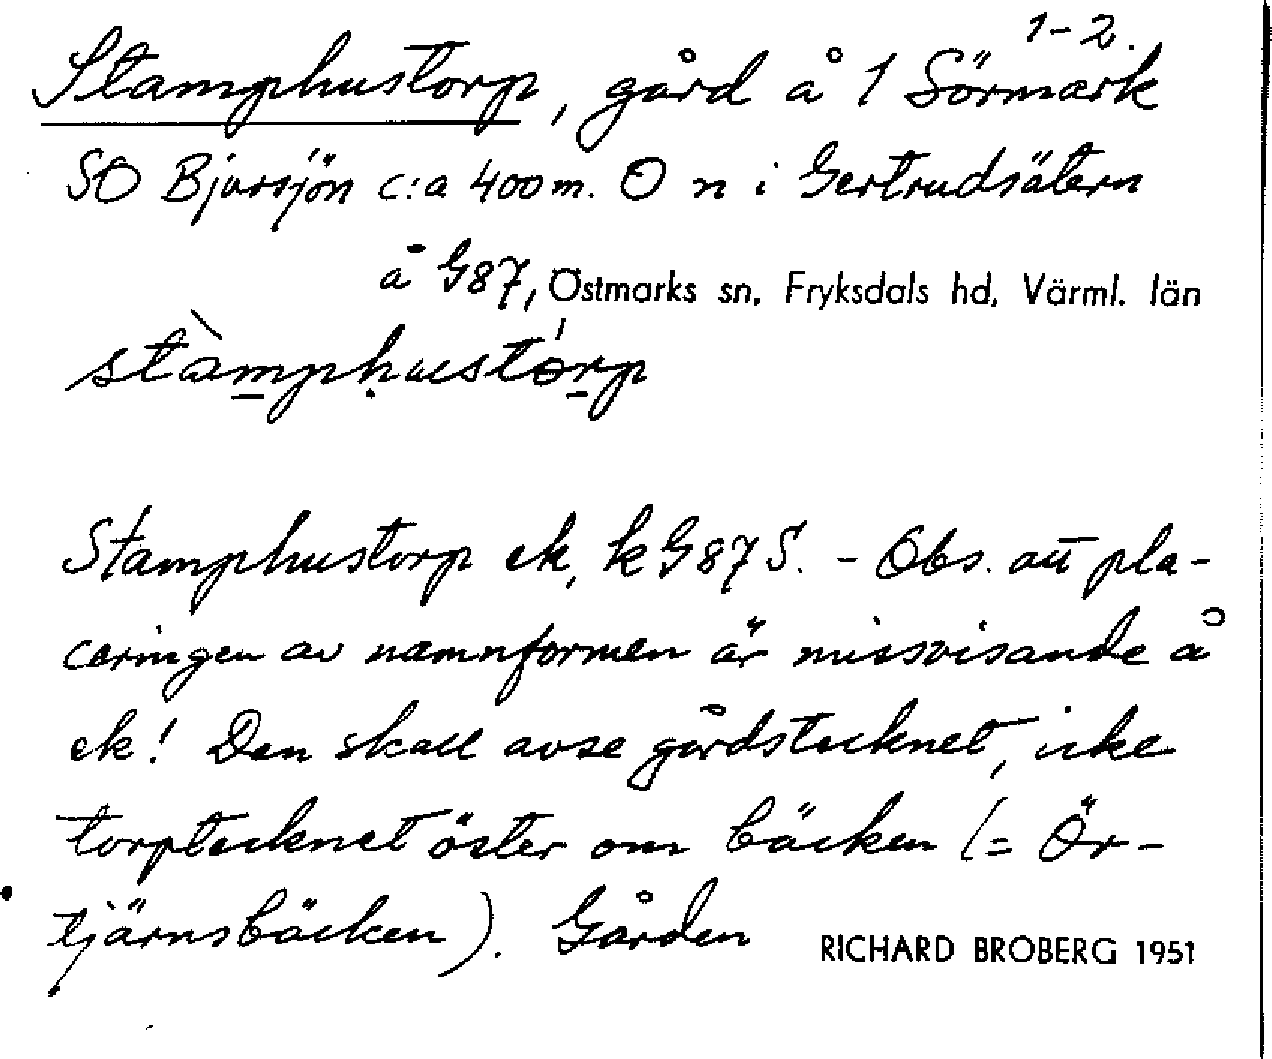 1-2.
Stamphustorp, gård å 1 Sörmark
SO Bjursjön c:a 400 m. O n i Gertrudsätern
å G87, Östmarks sn, Fryksdals hd, Värml. län
stàmphustórp
Stamphustorp ek, k G87 S. - Obs. att pla-
ceringen av namnformen är missvisande å
ek! Den skall avse gårdstecknet, icke
torptecknet öster om bäcken (= Ör-
tjärnsbäcken). Gården
RICHARD BROBERG 1951